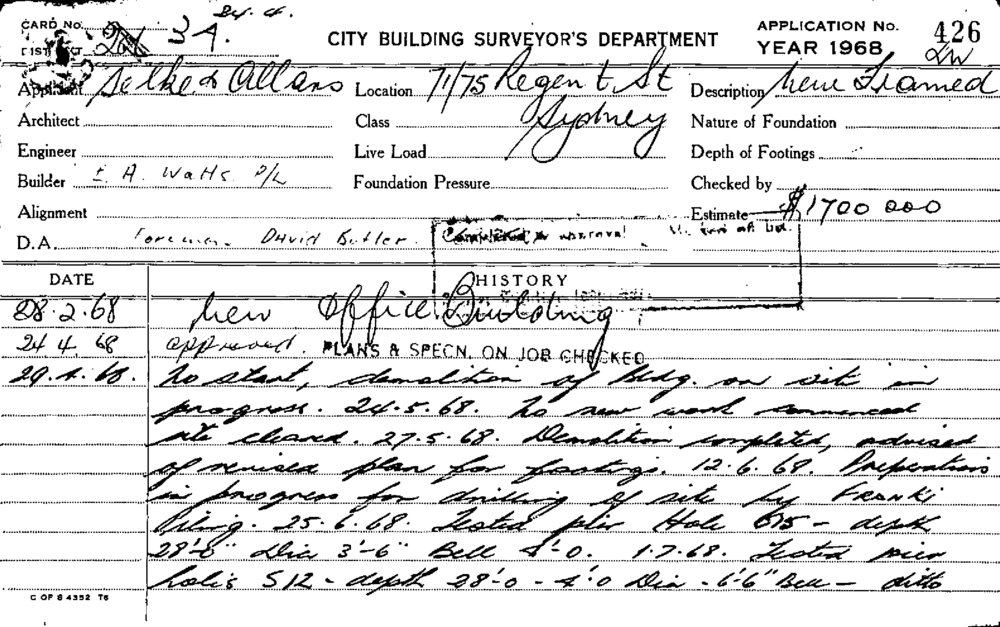 CARD No. 34.
CITY BUILDING SURVEYOR'S DEPARTMENT
APPLICATION No. 426
YEAR 1968
Applicant Selke & Allans Location 71/75 Regent St Description New Framed
Architect Class Sydney Nature of Foundation
Engineer Live Load Depth of Footings
Builder E. A. Watts P/L Foundation Pressure Checked by
Alignment Estimate $1700 000
D.A. Foreman. David Butler.
DATE HISTORY
28.2.68 New Office Building
24 4. 68 approved. PLANS & SPECN. ON JOB CHECKED
29.4.68. No start, demolition of Bldg. on site in
progress. 24.5.68. No new work commenced
site cleared. 27.5.68. Demolition completed, advised
of revised plan for footings. 12.6.68. Preparations
in progress for drilling of site by FRANKI
Piling. 25.6.68. Tested pier Hole - depth
28'-0" Dia 3'-6" Bell 1.7.68. Tested pier
holes S12 - depth 28'-0 - 4'0 Dia - 6'6" Bell - ditto
C OF S 4352 76